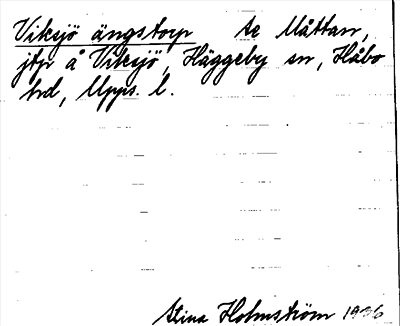 Viksjö ängstorp se Måttan,
jtp å Viksjö, Häggeby sn, Håbo
hd, Upps. l.
Stina Holmström 1936